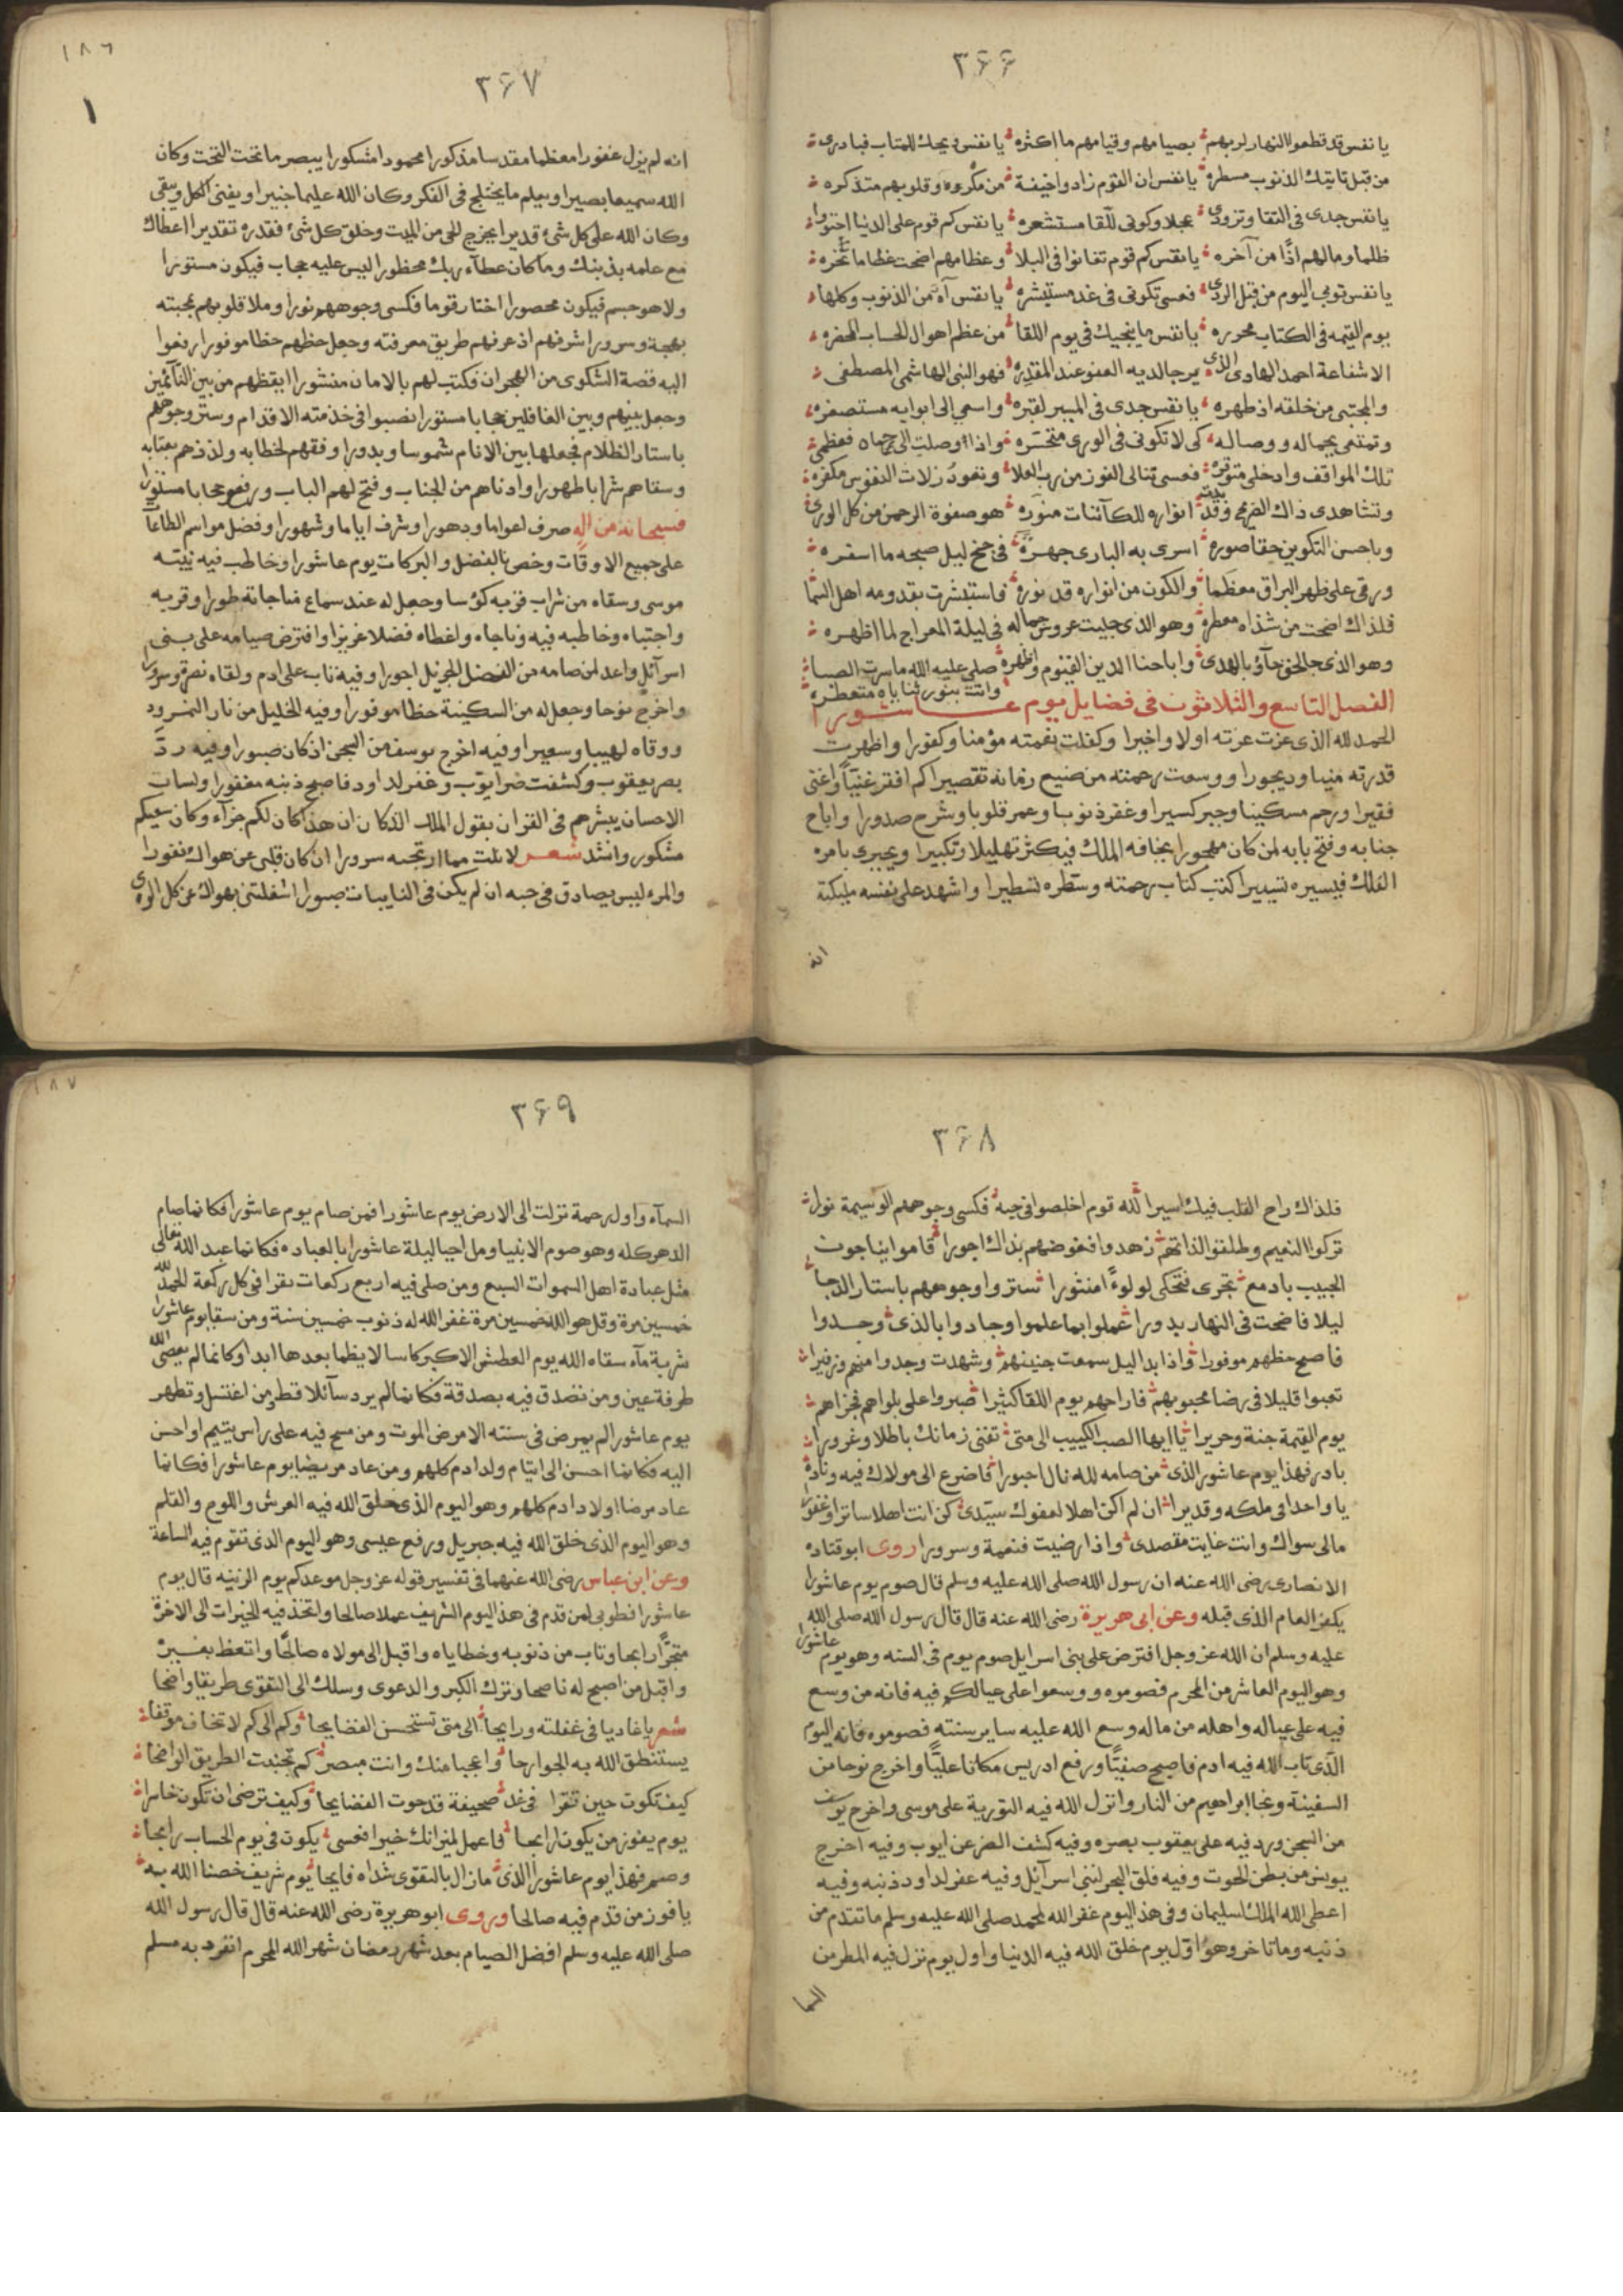 ٣۶۶
يا نفس قد قطعوا النهار لربهم بصيامهم وقيامهم ما اكثره يا نفس ويحك للمتاب فبادرى
من قبل تاتيك الذنوب مسطره يا نفس ان القوم زادوا خيفة من مكروه وقلوبهم متذكره
يا نفس جدى فى التقا وتزودى عجلا وكونى للقا مستشعره يا نفس كم قوم على الدنيا احتووا
ظلما ومالهم اذا من آخره يا نفس كم قوم تفانوا فى البلا وعظامهم اضحت عظاما نخره
يا نفس توبى اليوم من قبل الردى فعسى تكونى فى غد مستبشره يا نفس آه من الذنوب وكلها
يوم القيمه فى الكتاب محرره يا نفس ما ينجيك فى يوم اللقا من عظم اهوال الحساب المحضره
الا شفاعة احمد الهادى الذى يرجا لديه العفو عند المقدره فهو النبى الهاشمى المصطفى
والمجتبى من خلقه اذ طهره يا نفس جدى فى المسير لقبره واسعى الى ابوابه مستصغره
وتمتعى بجماله ووصاله كى لا تكونى فى الورى متحسره واذا وصلت الى حماه فعظمى
تلك المواقف وادخلى متوقره فعسى تنالى الفوز من رب العلا وتعود زلات النفوس مكفره
وتشاهدى ذاك الضريح وقد بدت انواره للكائنات منوره هو صفوة الرحمن من كل الورى
وباحسن التكوين حقا صوره اسرى به البارى جهرة فى جنح ليل صبحه ما اسفره
ورقى على ظهر البراق معظما والكون من انواره قد نوره فاستبشرت بقدومه اهل السما
فلذاك اضحت من شذاه معطره وهو الذى جليت عروس جماله فى ليلة المعراج لما اظهره
وهو الذى بالحق جآؤ بالهدى واباحنا الدين القيوم واظهره صلى عليه الله ما سرت الصبا
واتت بنور ثناياه متعطره
الفصل التاسع والثلاثون فى فضايل يوم عاشورا
الحمد لله الذى عزت عزته اولا واخيرا وكفلت نعمته مؤمنا وكفورا واظهرت
قدرته ضيا وديجورا ووسعت رحمته من ضيع زمانه تقصيرا كم افقر غنيا واغنى
فقيرا ورحم مسكينا وجبر كسيرا وغفر ذنوبا وعمر قلوبا وشرح صدورا واباح
جنابه وفتح بابه لمن كان مهجورا يخافه الملك فيكثر تهليلا وتكبيرا ويجرى بامره
الفلك فيسيره تسييرا كتب كتاب رحمته وسطره تسطيرا واشهد على نفسه مليكته
انه
١٨٦
٣۶٧
١
انه لم يزل غفورا معظما مقدسا مذكورا محمودا مشكورا يبصر ما تحت التخت وكان
الله سميعا بصيرا ويعلم ما يختلج فى الفكر وكان الله عليما خبيرا ويفنى الكل ويبقى
وكان الله على كل شئ قديرا يخرج الحى من الميت وخلق كل شئ فقدره تقديرا اعطاك
مع علمه بذنبك وما كان عطآء ربك محظورا ليس عليه حجاب فيكون مستورا
ولا هو جسم فيكون محصورا اختار قوما فكسى وجوههم نورا وملا قلوبهم بمحبته
بهجة وسرورا شرفهم اذ عرفهم طريق معرفته وجعل حظهم حظا موفورا رفعوا
اليه قصة الشكوى من الهجران فكتب لهم بالامان منشورا ايقظهم من بين النآئمين
وجعل بينهم وبين الغافلين حجابا مستورا نصبوا فى خدمته الاقدام وستر وجوههم
باستار الظلام فجعلها بين الانام شموسا وبدورا وفقههم لخطابه ولذذهم بعتابه
وسقاهم شرابا طهورا وادناهم من الجناب وفتح لهم الباب ورفع حجابا مستورا
فسبحانه من اله صرف اعواما ودهورا وشرف اياما وشهورا وفضل مواسم الطاعات
على جميع الاوقات وخص بالفضل والبركات يوم عاشورا وخاطب فيه نبيه
موسى وسقاه من شراب قربه كؤسا وجعل له عند سماع مناجاته طورا وقربه
واجتباه وخاطبه فيه وناجاه واعطاه فضلا غزيرا وافترض صيامه على بنى
اسرآئل واعد لمن صامه من الفضل الجزيل اجورا وفيه تاب على ادم ولقاه نضرة وسرورا
واخرج نوحا وجعل له من السكينة حظا موفورا وفيه الخليل من نار النمرود
ووقاه لهيبا وسعيرا وفيه اخرج يوسف من السجن اذ كان صبورا وفيه رد
بصر يعقوب وكشفت ضر ايوب وغفر لداود فاصبح ذنبه مغفورا ولسان
الاحسان يبشرهم فى القران بقول الملك الذكان ان هذا كان لكم جزآء وكان سعيكم
مشكورا وانشد شعر لا نلت مما ارتجيه سرورا ان كان قلبى عن هواك نفورا
والمرء ليس بصادق فى حبه ان لم يكن فى النايبات صبورا اشغلتنى بهواك عن كل الورى
٣۶٨
فلذاك راح القلب فيك اسيرا لله قوم اخلصوا فى حبه فكسى وجوههم الوسيمة نورا
تركوا النعيم وطلقوا لذاتهم زهدوا فعوضهم بذاك اجورا قاموا يناجون
الحبيب بادمع تجرى فتحكى لولوءا منثورا ستروا وجوههم باستار الدجا
ليلا فاضحت فى النهار بدورا عملوا بما علموا وجادوا بالذى وجدوا
فاصبح حظهم موفورا واذا بدا ليل سمعت حنينهم وشهدت وجدا منهم وزفيرا
تعبوا قليلا فى رضا محبوبهم فاراحهم يوم اللقا كثيرا صبروا على بلواهم فجزاهم
يوم القيمة جنة وحريرا يا ايها الصب الكييب الى متى تفنى زمانك باطلا وغرورا
بادر فهذا يوم عاشور الذى من صامه لله نال اجورا فاضرع الى مولاك فيه وناده
يا واحدا فى ملكه وقديرا ان لم اكن اهلا لعفوك سيدى كن انت اهلا ساترا وغفورا
مالى سواك وانت غايت مقصدى واذا رضيت فنعمة وسرورا روى ابو قتاده
الانصارى رضى الله عنه ان رسول الله صلى الله عليه وسلم قال صوم يوم عاشورا
يكفر العام الذى قبله وعن ابى هريرة رضى الله عنه قال قال رسول الله صلى الله
عليه وسلم ان الله عز وجل افترض على بنى اسرايل صوم يوم فى السنه وهو يوم عاشورا
وهو اليوم العاشر من المحرم فصوموه ووسعوا على عيالكم فيه فانه من وسع
فيه على عياله واهله من ماله وسع الله عليه ساير سنته فصوموه فانه اليوم
الذى تاب الله فيه ادم فاصبح صفيا ورفع ادريس مكانا عليا واخرج نوحا من
السفينة ونجا ابراهيم من النار وانزل الله فيه التورية على موسى واخرج يوسف
من السجن ورد فيه على يعقوب بصره وفيه كشف الضر عن ايوب وفيه اخرج
يونس من بطن الحوت وفيه فلق البحر لبنى اسرآئل وفيه غفر لداود ذنبه وفيه
اعطى الله الملك سليمان وفى هذا اليوم غفر الله لمحمد صلى الله عليه وسلم ما تقدم من
ذنبه وما تاخر وهو اول يوم خلق الله فيه الدنيا واول يوم نزل فيه المطر من
السما
١٨٧
٣۶٩
السمآء واول رحمة نزلت الى الارض يوم عاشورا فمن صام يوم عاشورا فكانما صام
الدهر كله وهو صوم الانبيا ومن احيا ليلة عاشورا بالعباده فكانما عبد الله تعالى
مثل عبادة اهل السموات السبع ومن صلى فيه اربع ركعات يقرا فى كل ركعة الحمد لله
خمسين مرة وقل هو الله خمسين مرة غفر الله له ذنوب خمسين سنة ومن سقا يوم عاشورا
شربة مآء سقاه الله يوم العطش الاكبر كاسا لا يظما بعدها ابدا وكانما لم يعصى الله
طرفة عين ومن تصدق فيه بصدقة فكانما لم يرد سآئلا قط ومن اغتسل وتطهر
يوم عاشورا لم يمرض فى سنته الا مرض الموت ومن مسح فيه على راس يتيم او احسن
اليه فكانما احسن الى ايتام ولد ادم كلهم ومن عاد مريضا يوم عاشورا فكانما
عاد مرضا اولاد ادم كلهم وهو اليوم الذى خلق الله فيه العرش واللوح والقلم
وهو اليوم الذى خلق الله فيه جبريل ورفع عيسى وهو اليوم الذى تقوم فيه الساعة
وعن ابن عباس رضى الله عنهما فى تفسير قوله عز وجل موعدكم يوم الزينه قال يوم
عاشورا فطوبى لمن قدم فى هذا اليوم الشريف عملا صالحا واتخذ فيه للخيرات الى الاخرة
متجرا رابحا وتاب من ذنوبه وخطاياه واقبل الى مولاه صالحا واتعظ بغيره
واقبل من اصبح له ناصحا وترك الكبر والدعوى وسلك الى التقوى طريقا واضحا
شعر يا غاديا فى غفلته ورايحا الى متى تستحسن الفضايحا وكم الى كم لا تخاف موقفا
يستنطق الله به الجوارحا واعجبا منك وانت مبصر كم تجنبت الطريق الواضحا
كيف تكون حين تقرا فى غد صحيفة قد حوت الفضايحا وكيف ترضى ان تكون خاسرا
يوم يفوز من يكون رابحا فاعمل لميزانك خيرا فعسى يكون فى يوم الحساب رابحا
وصم فهذا يوم عاشور الذى مازال بالتقوى شذاه فايحا يوم شريف خصنا الله به
يا فوز من قدم فيه صالحا وروى ابو هريرة رضى الله عنه قال قال رسول الله
صلى الله عليه وسلم افضل الصيام بعد شهر رمضان شهر الله المحرم انفرد به مسلم